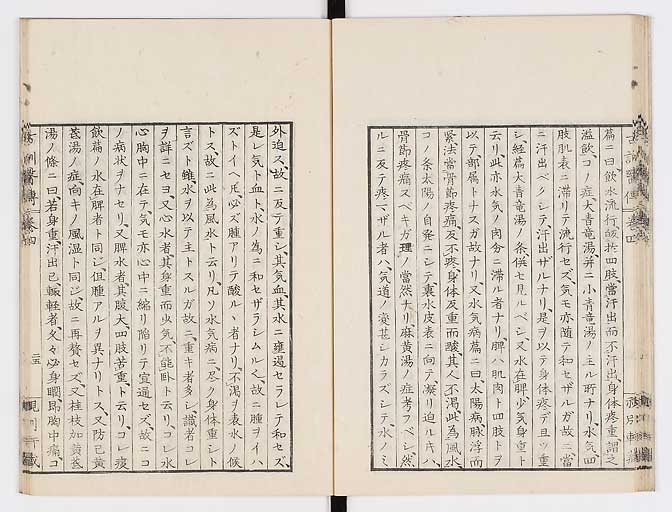 篇ニ曰飲水流行歸於四肢當汗出而不汗出身体疼重謂之
溢飲コノ症大青竜湯并ニ小青竜湯ノ主ル所ナリ水気四
肢肌表ニ滞リテ流行セズ気モ亦随テ和セザルガ故ニ當
ニ汗出ベクシテ汗出ザルナリ是ヲ以テ身体疼デ且ツ重
シ経篇大青竜湯ノ条併セ見ルベシ又水在脾少気身重ト
云リ此亦水気ノ肉分ニ滞ル者ナリ脾ハ肌肉ト四肢トヲ
以テ部属トナスガ故ナリ又水気病篇ニ曰太陽病脉浮而
緊法當骨節疼痛反不疼身体反重而酸其人不渇此為風水
コノ条太陽ノ自発ニシテ裏水皮表ニ向テ凝リ迫ルキハ
骨節疼痛スベキガ理ノ當然ナリ麻黄湯ノ症考フベシ然
ルニ反テ疼マザル者ハ気道ノ変甚シカラズシテ水ノミ
外迫ス故ニ反テ重シ其気血其水ニ壅遏セラレテ和セズ
是レ気ト血ト水ノ為ニ和セザラシムル也故ニ腫ヲイハ
ズトイヘ𪜈必ズ腫アリテ酸ルヽ者ナリ不渇ヲ表水ノ候
トス故ニ此為風水ト云リ凡ソ水気病ニ尽ク身体重シト
言ズト雖水ヲ以テ主トスルガ故ニ重キ者多シ識者コレ
ヲ詳ニセヨ又心水者其身重而少気不能卧ト云リコレ水
心胸中ニ在テ気モ亦心中ニ縮リ陥リテ宣通セズ故ニコ
ノ病状ヲナセリ又脾水者其腹大四肢苦重ト云リコレ痰
飲篇ノ水在脾者ト同シ但腫アルヲ異ナリトス又防已黄
芪湯ノ症向キノ風湿ト同シ故ニ再贅セズ又桂枝加黄芪
湯ノ条ニ曰若身重汗出已輙軽者久々必身瞤瞤即胸中痛コ